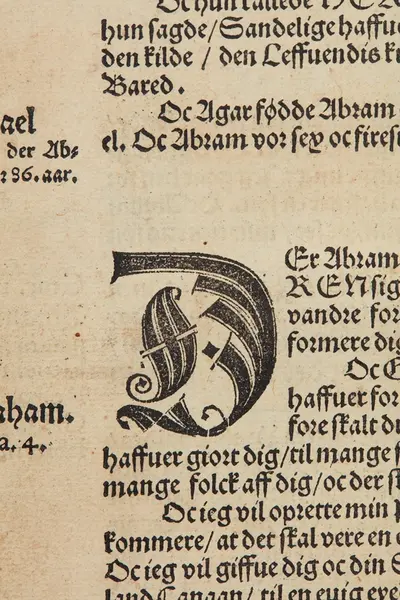 Oc hun kallede HER
hun sagde/Sandelige haffue
den kilde / den Leffuendis
Bared.
Oc Agar fødde Abram
el. Oc Abram vor sex oc fires
ael
der Ab=
86. aar.
DEr Abram
REN sig
vandre for
formere dig
Oc
haffuer for
fore skalt du
haffuer giort dig/til mange
mange folck aff dig/oc der
Oc ieg vil oprette min
kommere/ at det skal vere en
Oc ieg vil giffue dig oc din
land Canaan/ til en euig eye
aham.
a. 4.